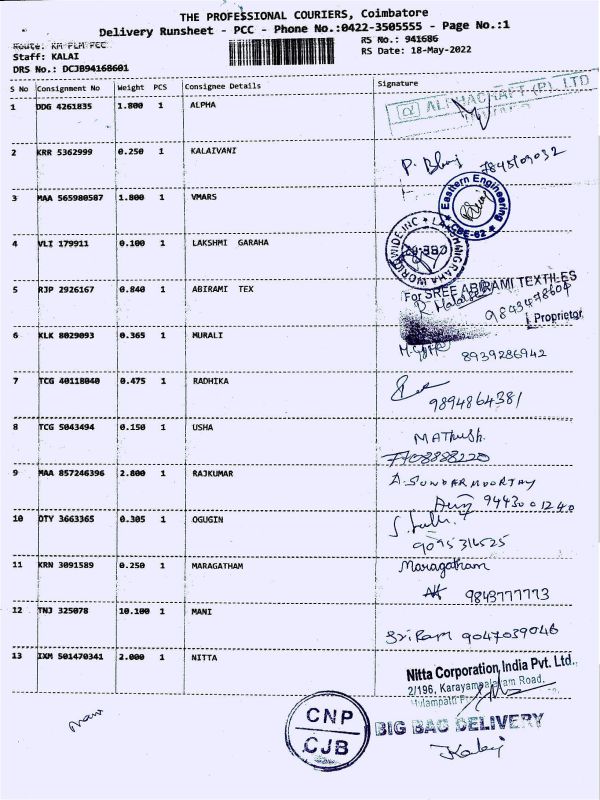 THE PROFESSIONAL COURIERS, Coimbatore
Delivery Runsheet - PCC - Phone No.:0422-3505555 - Page No.:1
Route: KM PLM PEC
RS No.: 941686
Staff: KALAI
RS Date: 18-May-2022
DRS No.: DCJB94168601
S No Consignment No Weight PCS Consignee Details Signature
1 DDG 4261835 1.800 1 ALPHA
2 KRR 5362999 0.250 1 KALAIVANI
7845109032
3 MAA 565980587 1.800 1 VMARS
Eastern Engineering
CBE-62
4 VLI 179911 0.100 1 LAKSHMI GARAHA
5 RJP 2926167 0.840 1 ABIRAMI TEX
For SREE ABIRAMI TEXTILES
Proprietor
6 KLK 8029093 0.365 1 MURALI
8939286942
7 TCG 40118040 0.475 1 RADHIKA
9894864381
8 TCG 5043494 0.150 1 USHA
7708888220
9 MAA 857246396 2.800 1 RAJKUMAR
A.SUNDARMOORTHY
9443001240
10 OTY 3663365 0.305 1 OGUGIN
9095316525
11 KRN 3091589 0.250 1 MARAGATHAM
Maragatham
9843777773
12 TNJ 325078 10.100 1 MANI
Sri Ram 9047039046
13 IXM 501470341 2.000 1 NITTA
Nitta Corporation India Pvt. Ltd.,
2/196, Karayampalayam Road,
CNP
CJB
BIG BAG DELIVERY